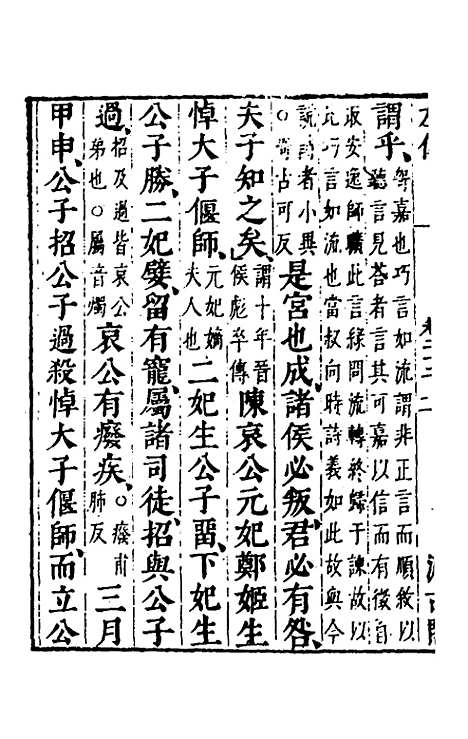 謂乎、哿嘉也巧言如流謂非正言而順敘以
聽言見荅者言其可嘉以信而有徵自
取安逸師曠此言緣問流轉終歸于諫故以
比巧言如流也當叔向時詩義如此故與今
說詩者小異
○哿古可反
是宮也成、諸侯必叛、君必有咎、
夫子知之矣、謂十年晉侯彪卒傳 陳哀公元妃鄭姬生
悼大子偃師、元妃嫡夫人也 二妃生公子畱、下妃生
公子勝、二妃嬖、留有寵、屬諸司徒招與公子
過、招及過皆哀公弟也○屬音燭 哀公有癈疾、○癈甫肺反 三月
甲申、公子招公子過殺悼大子偃師、而立公